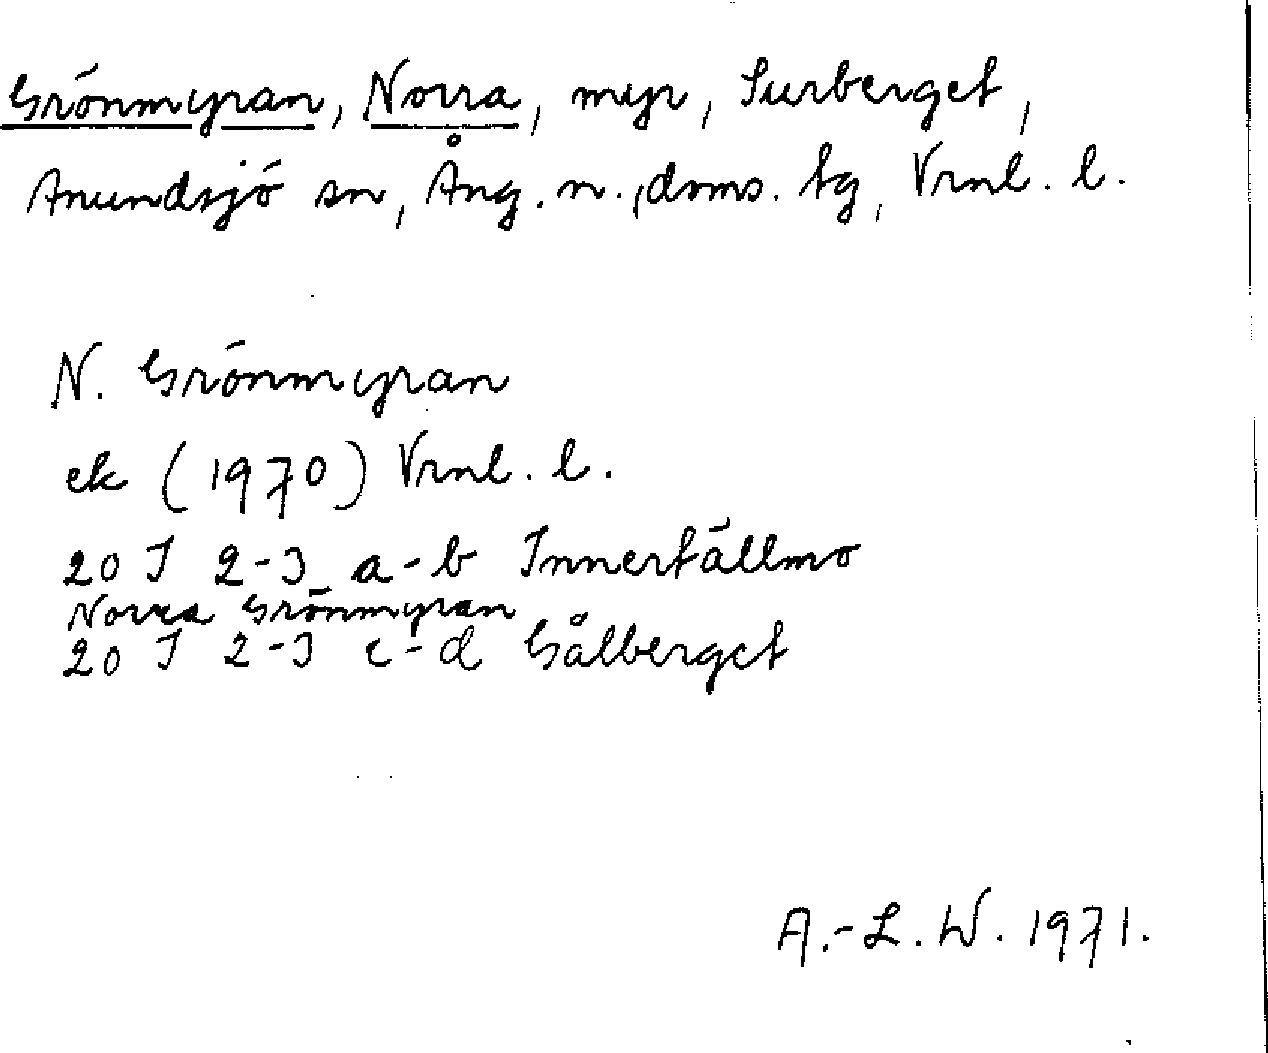 Grönmyran, Norra, myr, Surberget,
Anundsjö sn, Ång. n., doms. tg, Vrnl. l.
N. Grönmyran
ek (1970) Vrnl. l.
20 J 2-3 a-b Innertällmo
Norra Grönmyran
20 J 2-3 c-d Gålberget
A.-L. W. 1971.